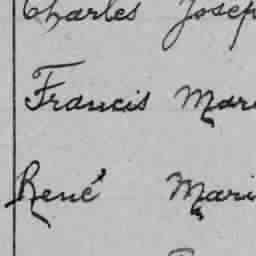 Charles Josep
Francis Mar
René Mari